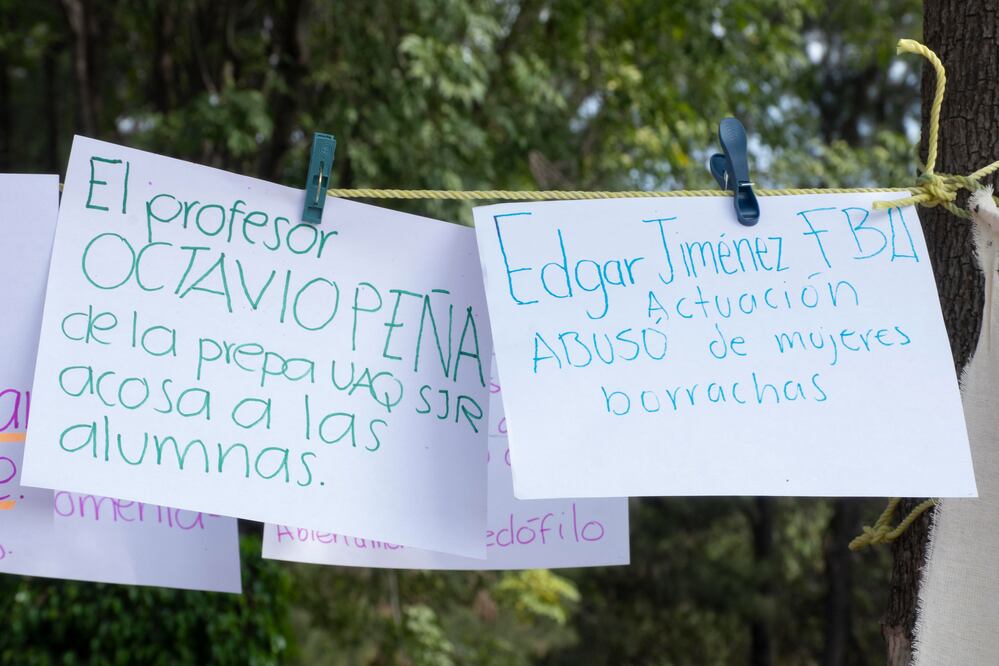 El profesor
OCTAVIO PEÑA
de la prepa UAQ SJR
acosa a las
alumnas.
Edgar Jiménez FBA
Actuación
ABUSÓ de mujeres
borrachas